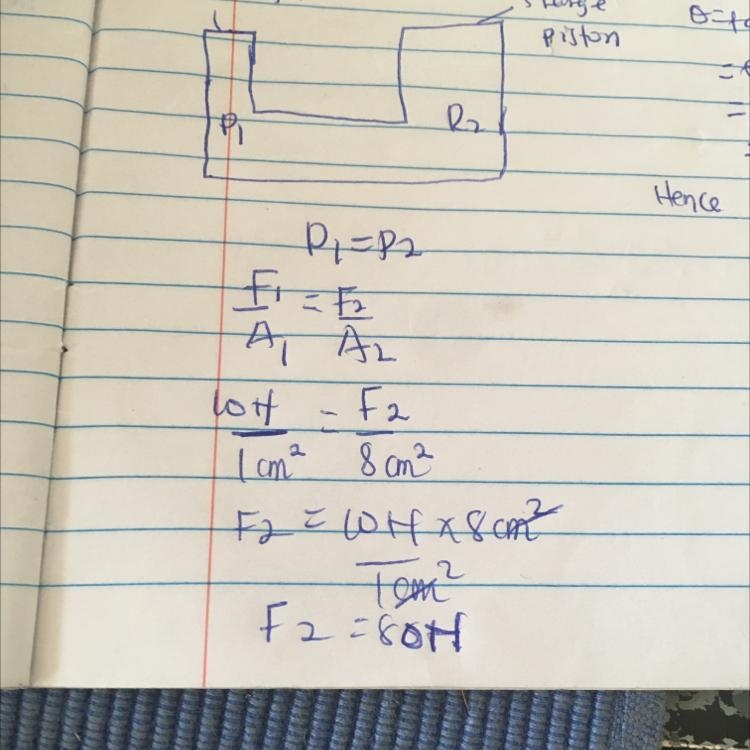 large
piston
P1 P2
Hence
P1 = P2
F1/A1 = F2/A2
10N/1cm² = F2/8cm²
F2 = 10N × 8cm²/1cm²
F2 = 80N